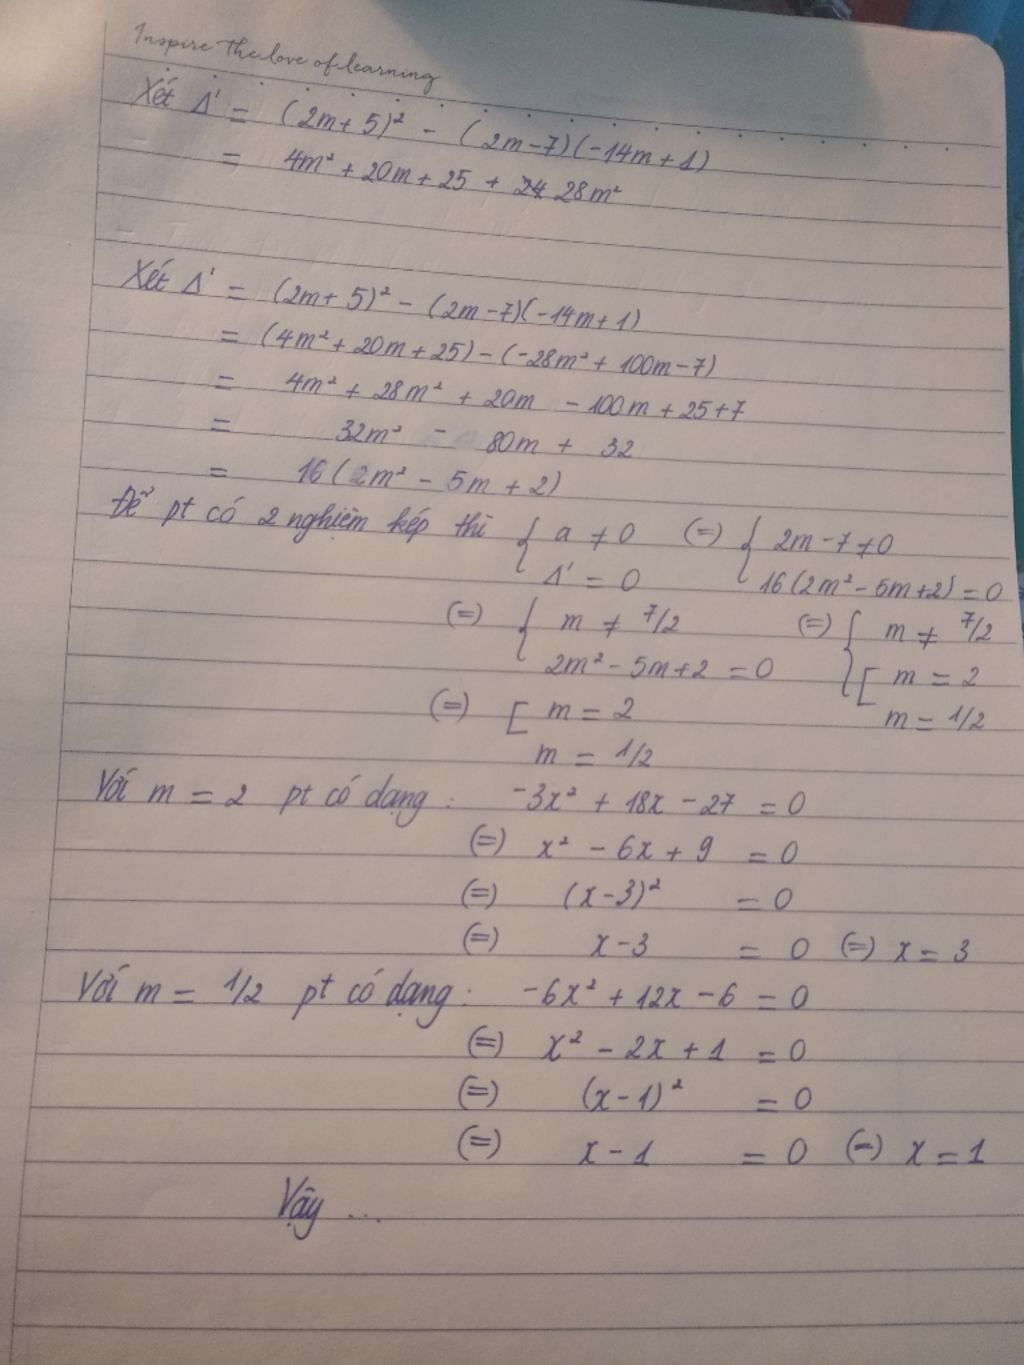 Inspire the love of learning
Xét Δ' = (2m+5)² - (2m-7)(-14m+1)
= 4m² + 20m + 25 + 28m²
Xét Δ' = (2m+5)² - (2m-7)(-14m+1)
= (4m² + 20m + 25) - (-28m² + 100m - 7)
= 4m² + 28m² + 20m - 100m + 25 + 7
= 32m² - 80m + 32
= 16(2m² - 5m + 2)
Để pt có 2 nghiệm kép thì { a ≠ 0 (=) { 2m - 7 ≠ 0
Δ' = 0 16(2m² - 5m + 2) = 0
(=) { m ≠ 7/2 (=) { m ≠ 7/2
2m² - 5m + 2 = 0 [ m = 2
(=) [ m = 2 m = 1/2
m = 1/2
Với m = 2 pt có dạng : -3x² + 18x - 27 = 0
(=) x² - 6x + 9 = 0
(=) (x-3)² = 0
(=) x - 3 = 0 (=) x = 3
Với m = 1/2 pt có dạng : -6x² + 12x - 6 = 0
(=) x² - 2x + 1 = 0
(=) (x-1)² = 0
(=) x - 1 = 0 (=) x = 1
Vậy ...